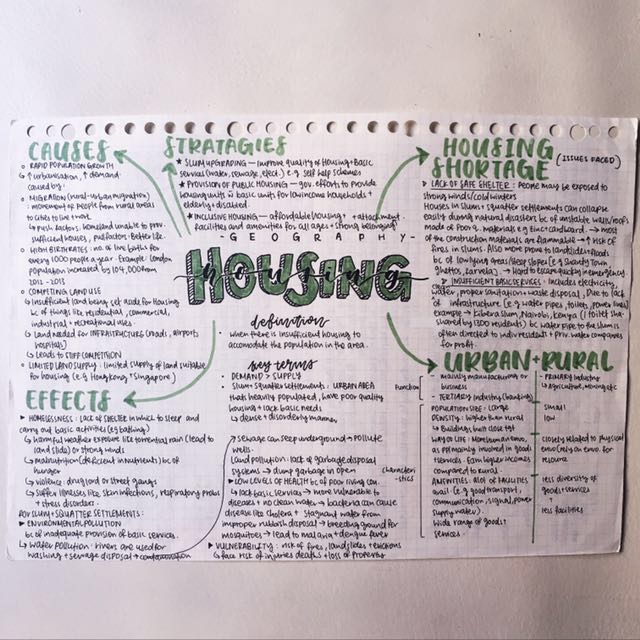 CAUSES
○ RAPID POPULATION GROWTH
↳ ↑ urbanisation, ↑ demand
caused by:
○ MIGRATION (rural-urban migration)
: movement of people from rural areas
to cities to live + work
↳ push factors: homeland unable to pro-
sufficient houses, pull factors: Better life.
○ HIGH BIRTH RATES: no. of live births for
every 1000 people a year. Example: London
population increased by 104,000 from
2012 - 2013
○ COMPETING LAND USE
↳ Insufficient land being set aside for Housing
bc of things like residential, commercial,
industrial + recreational uses
↳ Land needed for INFRASTRUCTURE (roads, airports
hospitals)
↳ Leads to STIFF COMPETITION
○ LIMITED LAND SUPPLY: limited supply of land suitable
for housing (e.g Hong Kong + Singapore)
EFFECTS
► HOMELESSNESS: Lack of shelter in which to sleep and
carry out basic activities (eg bathing)
↳ harmful weather exposure like torrential rain (lead to
land slide) or strong winds
↳ malnutrition (deficient in nutrients) bc of
hunger
↳ violence: drug lord or street gangs
↳ suffer illnesses like skin infections, respiratory
+ stress disorders.
for SLUM + SQUATTER SETTLEMENTS:
► ENVIRONMENTAL POLLUTION
bc of inadequate provision of basic services.
↳ water pollution: rivers are used for
washing + sewage disposal → contamination
STRATAGIES
★ SLUM UPGRADING — improve quality of Housing + Basic
services (water, sewage, elect.) e.g. self help schemes
★ PROVISION OF PUBLIC HOUSING — gov. efforts to provide
housing units w basic units for low income households +
elderly + disabled
★ INCLUSIVE HOUSING — affordable housing + ↑ attachment
facilities and amenities for all ages + strong belonging
- GEOGRAPHY -
HOUSING
housing
definition
• when there is insufficient housing to
accomodate the population in the area.
key terms
• DEMAND > SUPPLY
• Slum + squatter settlements: URBAN AREA
thats heavily populated, have poor quality
housing + lack basic needs
↳ dense + disorderly manner
sewage can seep underground + pollute
wells.
Land pollution: lack of garbage disposal
systems → dump garbage in open
► LOW LEVELS OF HEALTH bc of poor living con.
↳ lack basic services → more vulnerable to
diseases + no clean water → bacteria can cause
disease like cholera + stagnant water from
improper rubbish disposal → breeding ground for
mosquitoes → lead to malaria + dengue fever
► VULNERABILITY: risk of fires, landslides + evictions
↳ face risk of injuries deaths + loss of property
HOUSING
SHORTAGE (ISSUES FACED)
► LACK OF SAFE SHELTER: People may be exposed to
strong winds/cold winters
Houses in slums + squatter settlements can collapse
easily during natural disasters bc of unstable walls/roofs
made of poor Q. materials e.g zinc + cardboard. → most
of the construction materials are flammable → ↑ risk of
fires in slums. Also more prone to landslides + floods
bc of low lying areas/steep slopes (e.g
ghettos, favela) → Hard to escape quickly in emergency.
► INSUFFICIENT BASIC SERVICES: includes electricity,
water, proper sanitation + waste disposal, Due to lack
of infrastructure (e.g water pipes, toilets, power lines)
example → Kibera slum, Nairobi, Kenya (1 toilet sha-
shared by 1300 residents) bc water pipe to the slum is
often directed to indiv residents + priv. water companies
for profit.
URBAN + RURAL
Function
- mainly manufacturing or
business
- TERTIARY INDUSTRY (banking)
- PRIMARY INDUSTRY
↳ agriculture, mining etc
characteri
-stics
POPULATION SIZE: Large
small
DENSITY: Higher than rural
low
↳ Buildings built close tgt
WAY OF LIFE: More human envo.
as primarily involved in goods
services. Earn higher incomes
compared to rural
closely related to physical
envo (rely on envo. for
resource
AMENITIES: A lot of facilities
avail (e.g good transport,
communication, signal, power
supply water).
Wide range of goods +
services
less diversity of
goods + services
+
less facilities